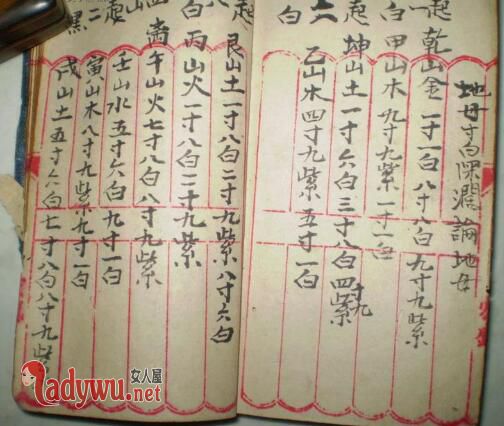 地母寸白深濶論地母
起乾山金一寸一白八寸八白九寸九紫
白甲山木九寸九紫一寸一白
起坤山土一寸六白三寸八白四寸九紫
六白
乙山木四寸九紫五寸一白
起艮山土一寸八白二寸九紫八寸六白
八白丙山火一寸八白二寸九紫
午山火七寸八白八寸九紫
壬山水五寸六白九寸一白
二黑
寅山木八寸九紫九寸一白
戌山土五寸六白七寸八白八寸九紫
女人屋
ladywu.net